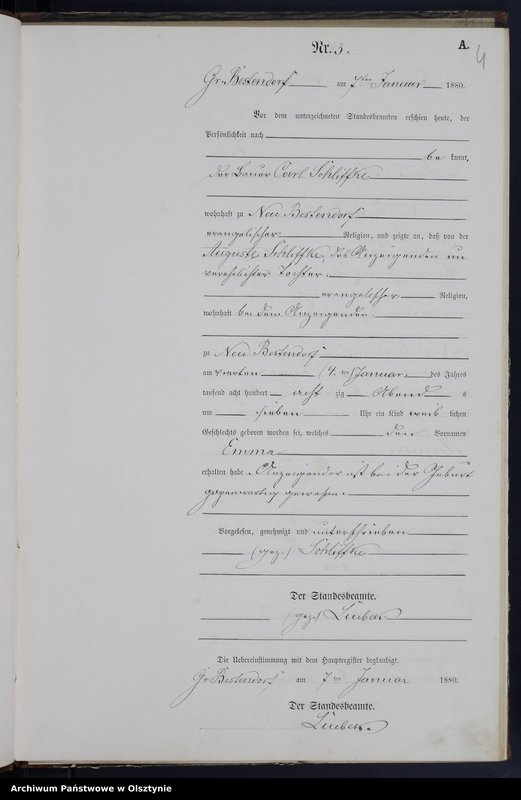 Nr. 3.
A.
4
Gr. Bestendorf am 7ten Januar 1880.
Vor dem unterzeichneten Standesbeamten erschien heute, der
Persönlichkeit nach
be kannt,
der Bauer Carl Schliffke
wohnhaft zu Neu Bestendorf
evangelischer Religion, und zeigte an, daß von der
Auguste Schliffke, des Anzeigenden un
verehelichter Tochter.
evangelischer Religion,
wohnhaft bei dem Anzeigenden.
zu Neu Bestendorf
am vierten (4. ten) Januar des Jahres
tausend acht hundert acht zig Abend s
um sieben Uhr ein Kind weib lichen
Geschlechts geboren worden sei, welches den Vornamen
Emma
erhalten habe. Anzeigender ist bei der Geburt
gegenwärtig gewesen.
Vorgelesen, genehmigt und unterschrieben
(gez.) Schliffke
Der Standesbeamte.
(gez.) Lucbeck
Die Uebereinstimmung mit dem Hauptregister beglaubigt.
Gr. Bestendorf am 7 ten Januar 1880.
Der Standesbeamte.
Archiwum Państwowe w Olsztynie